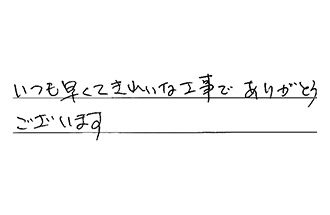 いつも早くてきれいな工事で ありがとう
ございます